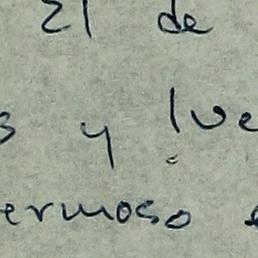 21 de
s y lue
ermoso e